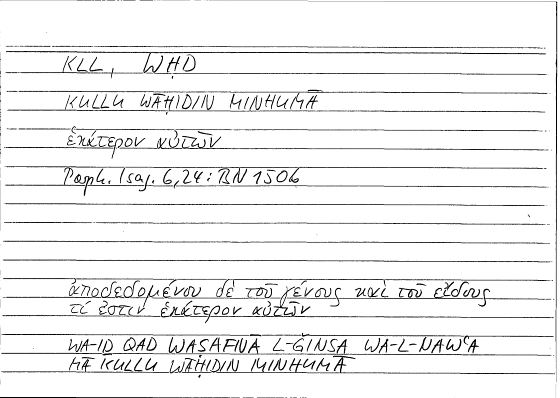 KLL, WḤD
KULLU WĀḤIDIN MINHUMĀ
ἑκάτερον αὐτῶν
Porph. Isag. 6,24: BN 150b
ἀποδεδομένου δὲ τοῦ γένους καὶ τοῦ εἴδους
τί ἐστιν ἑκάτερον αὐτῶν
WA-ID QAD WAṢAFNĀ L-ǦINSA WA-L-NAWʿA
MĀ KULLU WĀḤIDIN MINHUMĀ